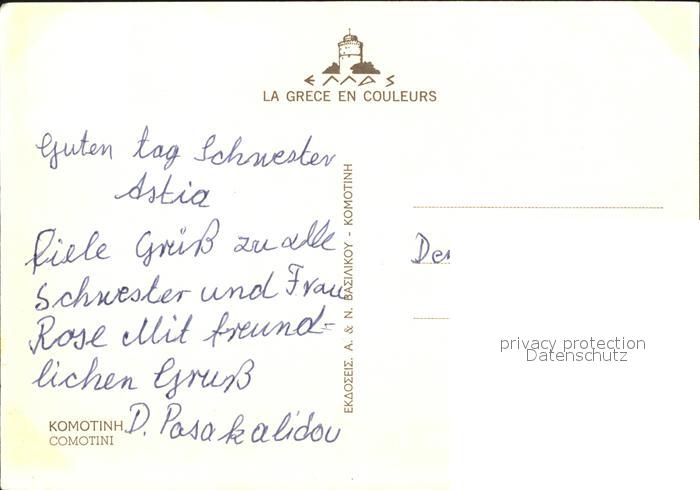 ΕΛΛΑΣ
LA GRECE EN COULEURS
Guten tag Schwester
Astia
Fiele Grüß zu alle
Schwester und Frau
Rose Mit freund-
lichen Gruß
D. Pasakalidou
ΚΟΜΟΤΙΝΗ
COMOTINI
ΕΚΔΟΣΕΙΣ. Α. & Ν. ΒΑΣΙΛΙΚΟΥ - ΚΟΜΟΤΙΝΗ
privacy protection
Datenschutz